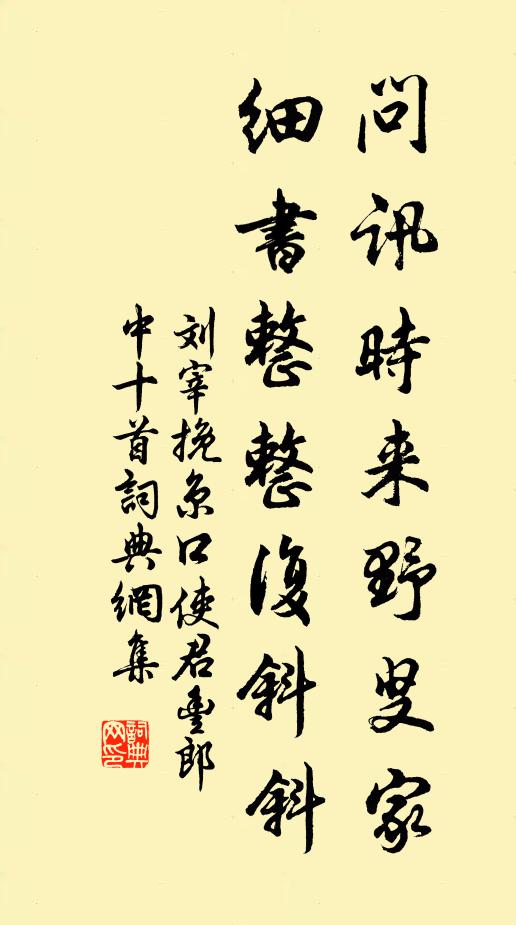 問訊時来野叟家
細書整整復斜斜
刘宰挽京口使君豊郎
中十首詞典網集
詞典
网印